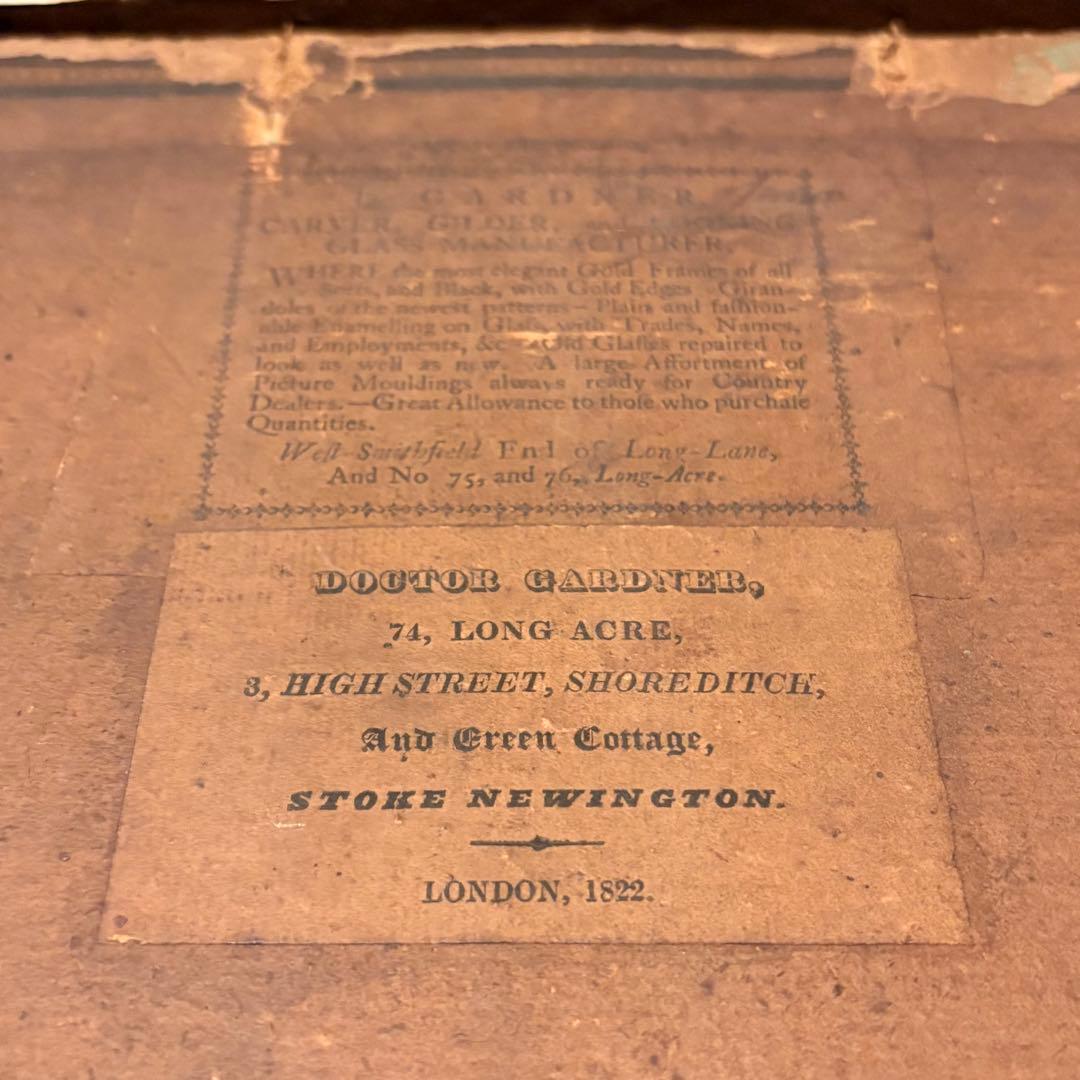 GARDNER,
CARVER, GILDER, and LOOKING
GLASS MANUFACTURER,
WHERE the most elegant Gold Frames of all
Sorts, and Black, with Gold Edges Giran-
doles of the newest patterns—Plain and faſhion-
able Enamelling on Glaſs, with Trades, Names,
and Employments, &c Old Glaſſes repaired to
look as well as new. A large Aſſortment of
Picture Mouldings always ready for Country
Dealers.—Great Allowance to thoſe who purchaſe
Quantities.
Weſt-Smithfield End of Long-Lane,
And No 75, and 76, Long-Acre.
DOCTOR GARDNER,
74, LONG ACRE,
3, HIGH STREET, SHOREDITCH,
And Green Cottage,
STOKE NEWINGTON.
LONDON, 1822.